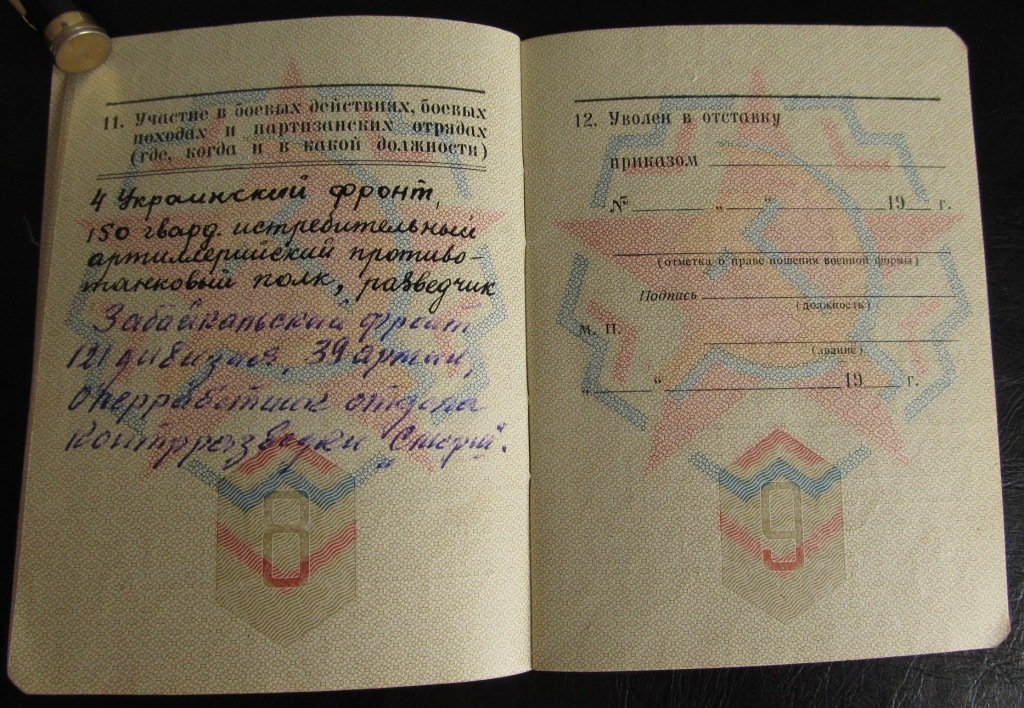 11. Участие в боевых действиях, боевых
походах и партизанских отрядах
(где, когда и в какой должности)
4 Украинский фронт,
150 гвард. истребительный
артиллерийский противо-
танковый полк, разведчик
Забайкальский фронт
121 дивизия, 39 армии,
оперработник отдела
контрразведки „Смерш".
8
12. Уволен в отставку
приказом
№ „ “ 19 г.
(отметка о праве ношения военной формы)
Подпись
(должность)
М. П.
(звание)
„ “ 19 г.
9